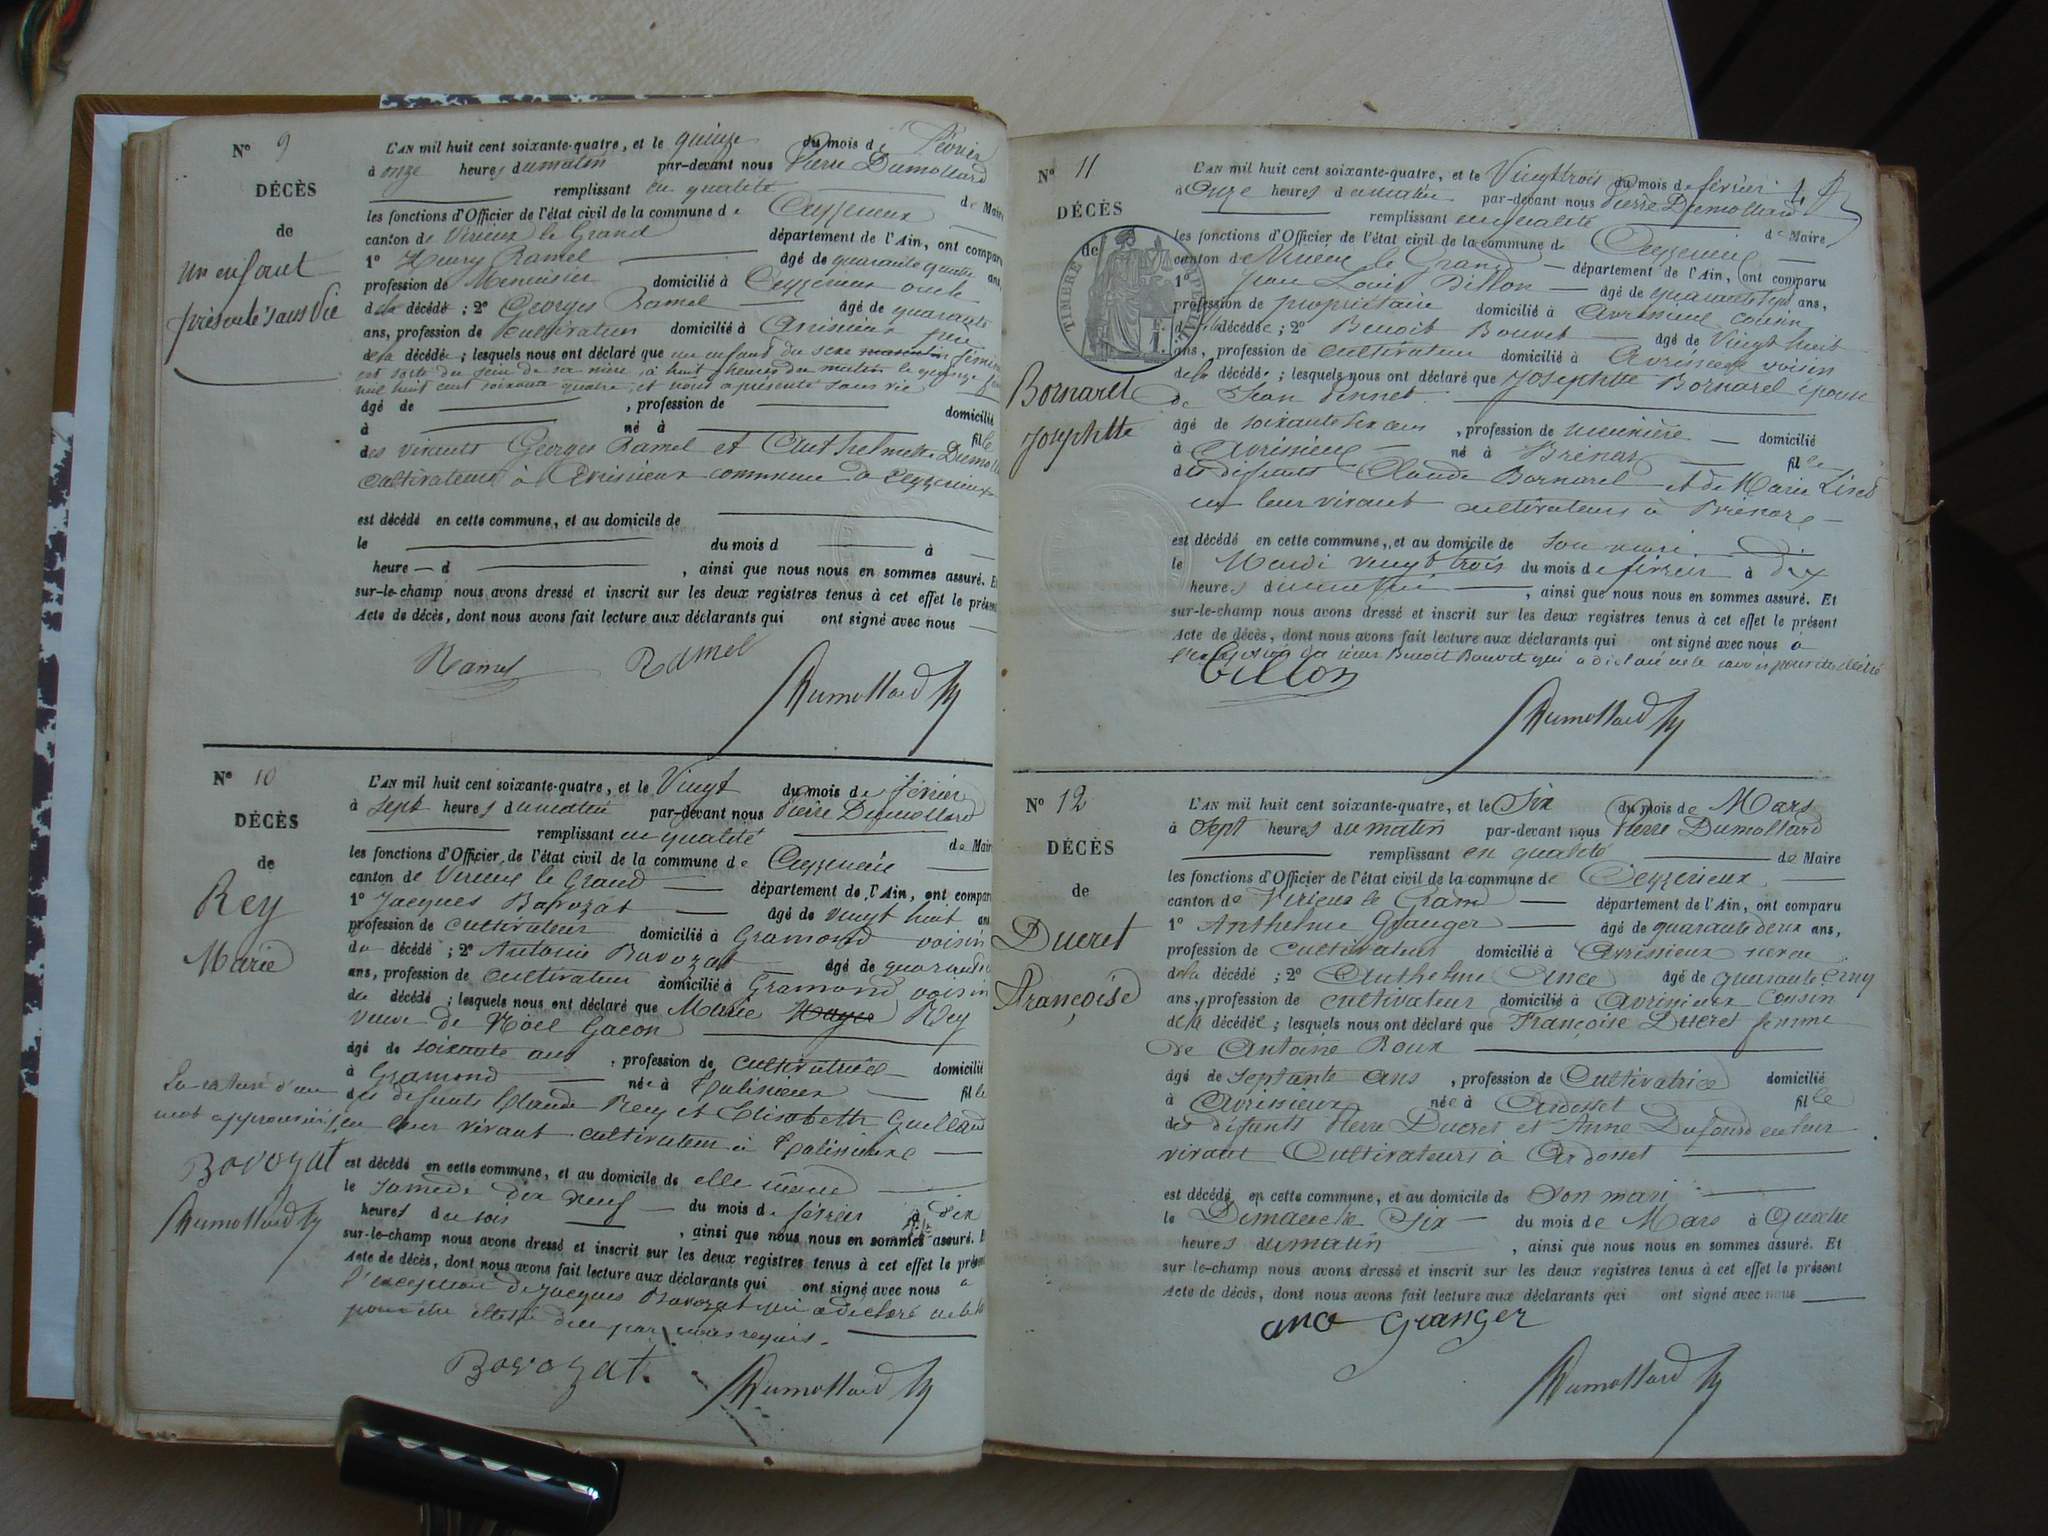 N° 9
DÉCÈS
de
un enfant
présenté sans Vie
L'AN mil huit cent soixante-quatre, et le quinze du mois de Février
à onze heures du matin par-devant nous Pierre Dumollard
remplissant en qualité de Maire
les fonctions d'Officier de l'état civil de la commune de Ceyzerieux
canton de Virieux le Grand département de l'Ain, ont comparu
1° Henry Ramel âgé de quarante quatre ans,
profession de Menuisier domicilié à Ceyzerieux oncle
de la décédé ; 2° Georges Ramel âgé de quarante
ans, profession de cultivateur domicilié à Avrissieux père
de la décédée ; lesquels nous ont déclaré que un enfant du sexe
est sorti du sein de sa mère, à huit heures du matin le quinze
mil huit cent soixante quatre, et nous a présenté sans vie
âgé de , profession de domicilié
à né à fille
des vivants Georges Ramel et Anthelmette
cultivateurs à Avrissieux commune de Ceyzerieux
est décédé en cette commune, et au domicile de
le du mois d à
heure d , ainsi que nous nous en sommes assuré. Et
sur-le-champ nous avons dressé et inscrit sur les deux registres tenus à cet effet le présent
Acte de décès, dont nous avons fait lecture aux déclarants qui ont signé avec nous
Ramel Ramel
Dumollard
N° 10
DÉCÈS
de
Rey
Marie
L'AN mil huit cent soixante-quatre, et le Vingt du mois de février
à sept heures du matin par-devant nous Pierre Dumollard
remplissant en qualité de Maire
les fonctions d'Officier de l'état civil de la commune de Ceyzerieux
canton de Virieux le Grand département de l'Ain, ont comparu
1° Jacques Bavozat âgé de vingt huit ans
profession de cultivateur domicilié à Gramond voisin
du décédé ; 2° Antoine Bavozat âgé de quarante
ans, profession de cultivateur domicilié à Gramond voisin
du décédé ; lesquels nous ont déclaré que Marie Rey
veuve de Noël Gacon
âgé de soixante ans , profession de cultivatrice domicilié
à Gramond née à Talissieux fille
des défunts Claude Rey et Elisabeth Guilland
en leur vivant cultivateur à Talissieux
La rature d'un
mot approuvée
Bovozat
Dumollard
est décédé en cette commune, et au domicile de elle même
le samedi dix neuf du mois de février à dix
heures du soir , ainsi que nous nous en sommes assuré. Et
sur-le-champ nous avons dressé et inscrit sur les deux registres tenus à cet effet le présent
Acte de décès, dont nous avons fait lecture aux déclarants qui ont signé avec nous à
l'exception de Jacques Bavozat qui a déclaré ne le
pour être illettré de ce par nous requis.
Bovozat.
Dumollard
N° 11
DÉCÈS
de
TIMBRE IMPÉRIAL
Bornarel
Josephtte
L'AN mil huit cent soixante-quatre, et le Vingt trois du mois de février
à Onze heures du matin par-devant nous Pierre Dumollard
remplissant en qualité de Maire
les fonctions d'Officier de l'état civil de la commune de Ceyzerieux
canton de Virieux le Grand département de l'Ain, ont comparu
1° Jean Louis Billon âgé de quarante sept ans,
profession de propriétaire domicilié à Avrissieux cousin
de la décédée ; 2° Benoit Bouvet âgé de Vingt huit
ans, profession de cultivateur domicilié à Avrissieux voisin
de la décédé ; lesquels nous ont déclaré que Josephtte Bornarel épouse
de Jean Pennet
âgé de soixante six ans , profession de meunière domicilié
à Avrissieux né à Brénaz fille
des défunts Claude Bornarel et de Marie
en leur vivant cultivateurs à Brénaz
est décédé en cette commune, et au domicile de son mari
le Mardi vingt trois du mois de février à dix
heures du matin , ainsi que nous nous en sommes assuré. Et
sur-le-champ nous avons dressé et inscrit sur les deux registres tenus à cet effet le présent
Acte de décès, dont nous avons fait lecture aux déclarants qui ont signé avec nous à
l'exception du sieur Benoit Bouvet qui a déclaré ne le savoir pour être illettré
Billon
Dumollard
N° 12
DÉCÈS
de
Ducret
Françoise
L'AN mil huit cent soixante-quatre, et le Six du mois de Mars
à Sept heures du matin par-devant nous Pierre Dumollard
remplissant en qualité de Maire
les fonctions d'Officier de l'état civil de la commune de Ceyzerieux
canton de Virieux le Grand département de l'Ain, ont comparu
1° Anthelme Granger âgé de quarante deux ans,
profession de cultivateur domicilié à Avrissieux neveu
de la décédé ; 2° Anthelme Ance âgé de quarante cinq
ans, profession de cultivateur domicilié à Avrissieux cousin
de la décédée ; lesquels nous ont déclaré que Françoise Ducret femme
de Antoine Roux
âgé de septante ans , profession de Cultivatrice domicilié
à Avrissieux née à Ardosset fille
des défunts Pierre Ducret et Anne Dufourd en leur
vivant Cultivateurs à Ardosset
est décédé en cette commune, et au domicile de Son mari
le Dimanche Six du mois de Mars à Quatre
heures du matin , ainsi que nous nous en sommes assuré. Et
sur le-champ nous avons dressé et inscrit sur les deux registres tenus à cet effet le présent
Acte de décès, dont nous avons fait lecture aux déclarants qui ont signé avec nous
ance Granger
Dumollard